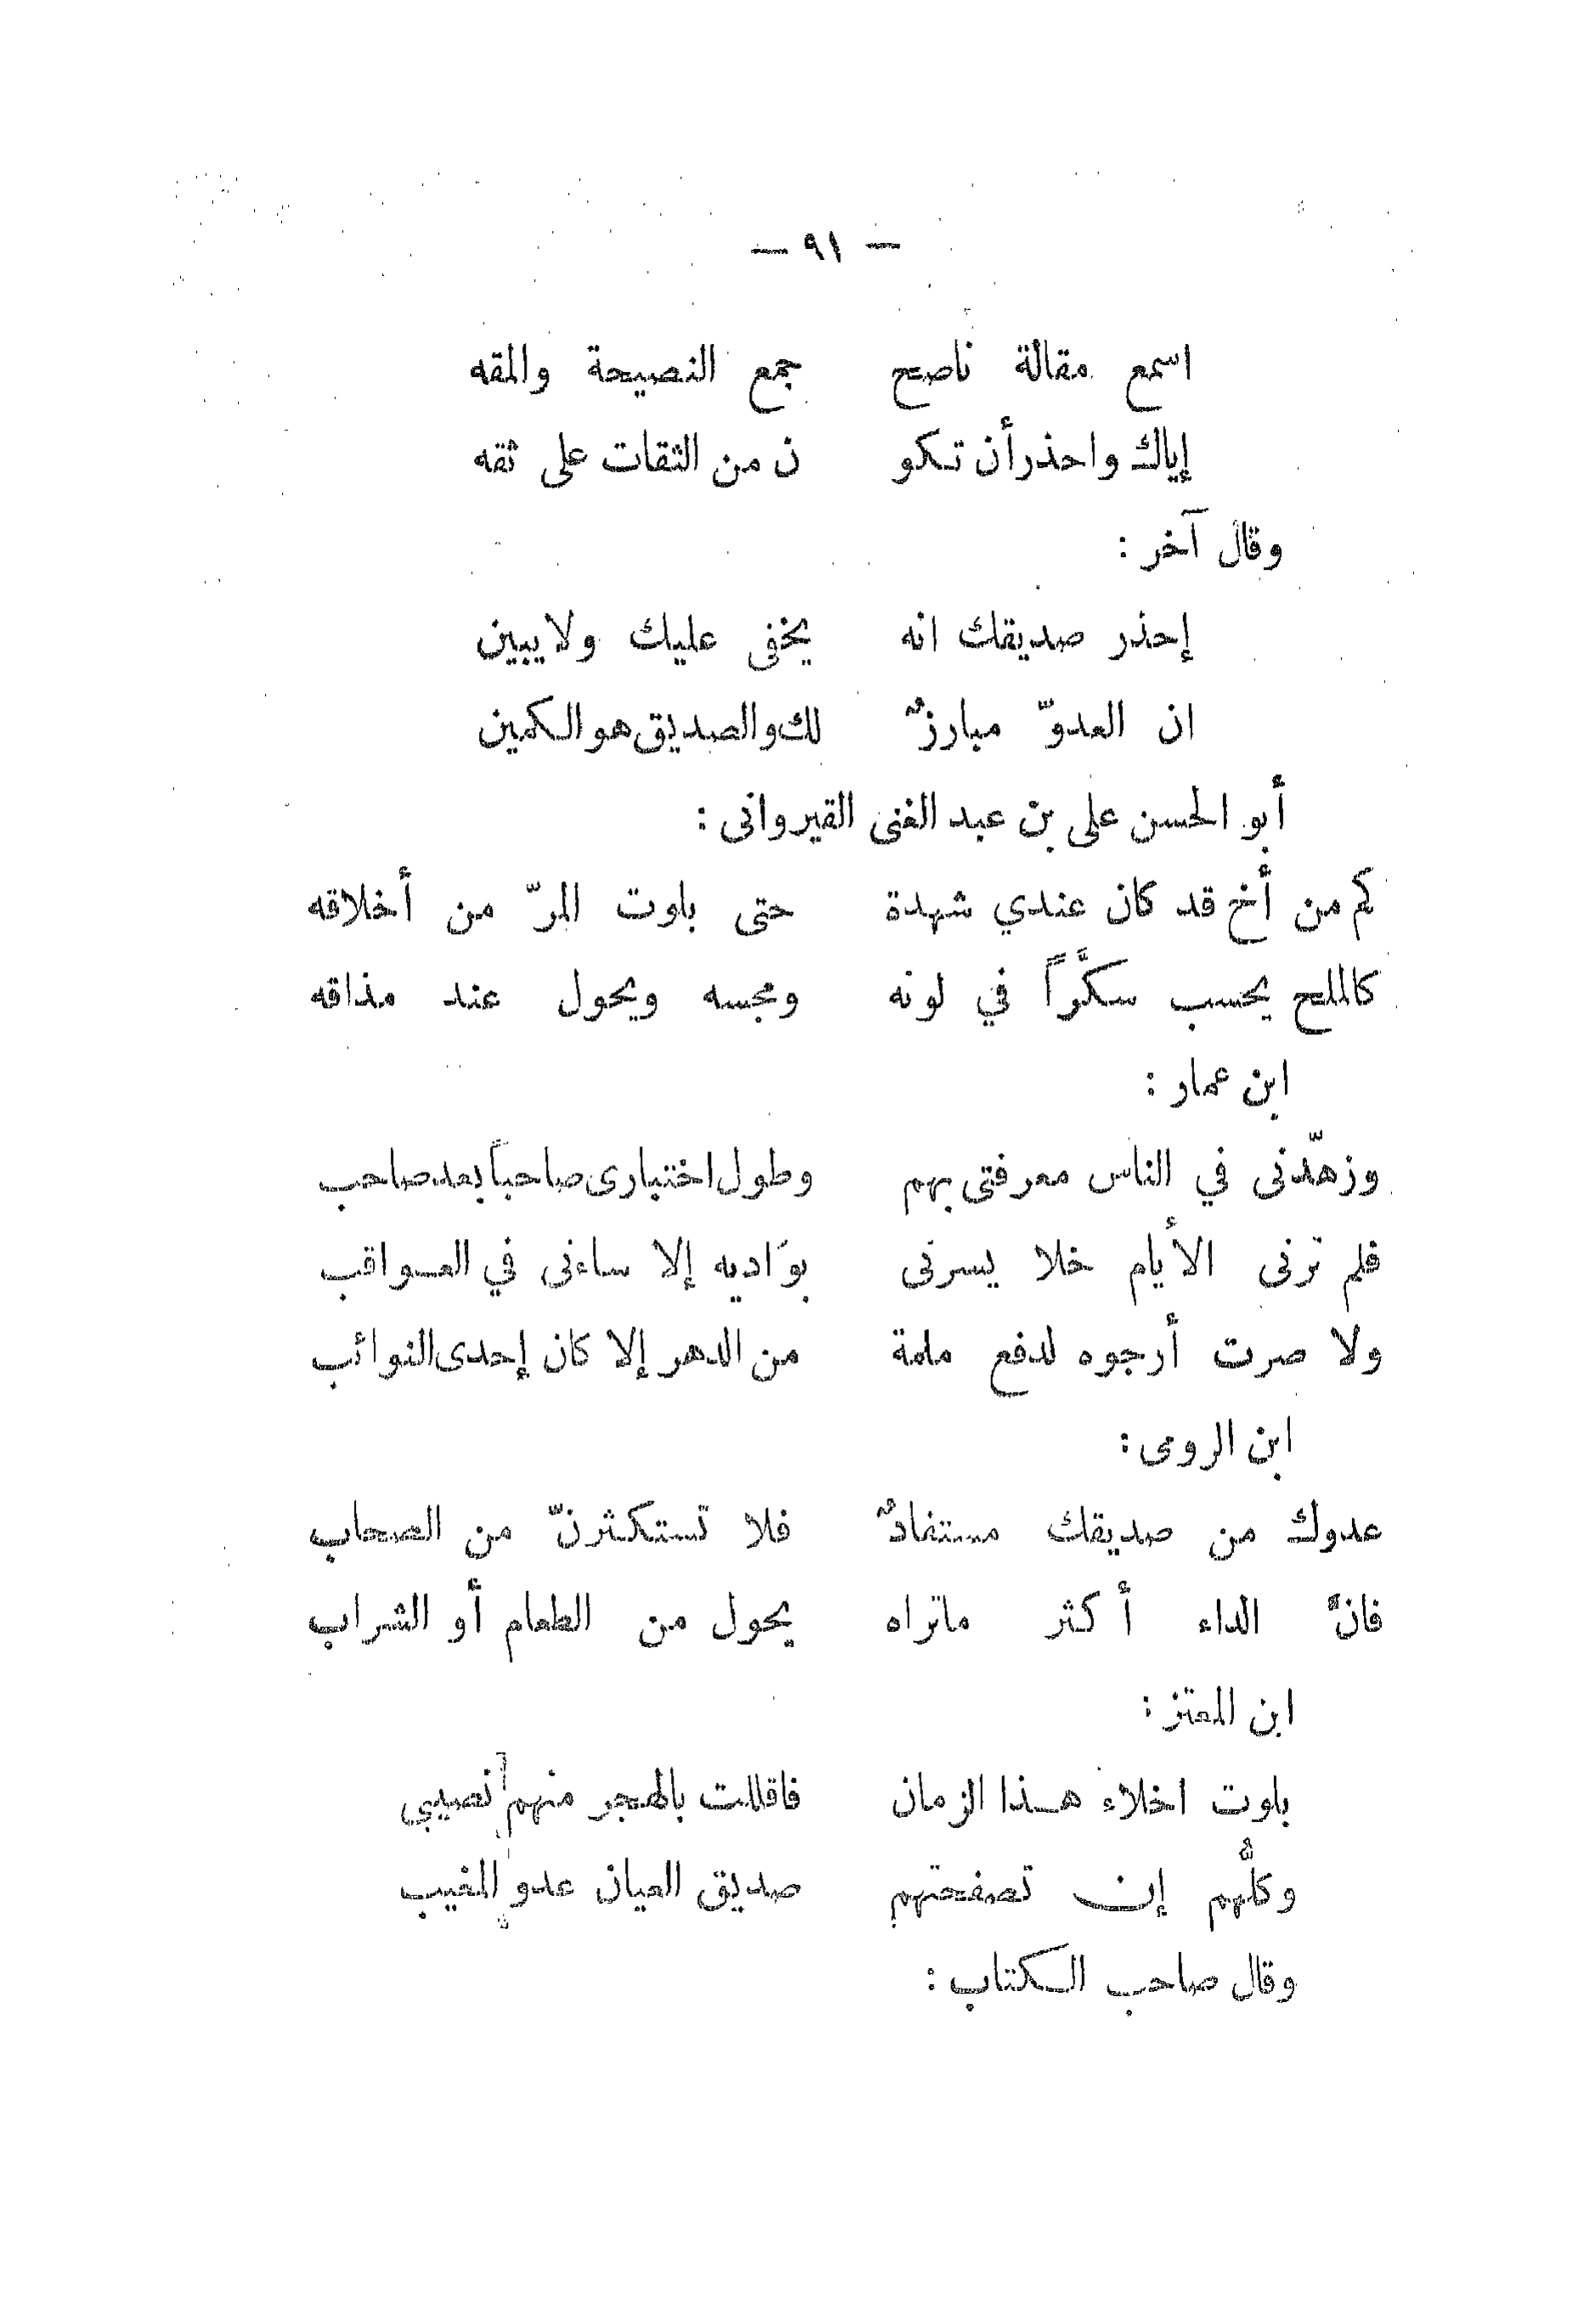 — ٩١ —
اسمع مقالة ناصح جمع النصيحة والمقه
إياك واحذر أن تكو ن من الثقات على ثقه
وقال آخر :
إحذر صديقك انه يخفى عليك ولا يبين
ان العدوّ مبارزٌ لك والصديق هو الكمين
أبو الحسن على بن عبد الغنى القيروانى :
كم من أخ قد كان عندي شهدة حتى بلوت المرّ من أخلاقه
كالملح يحسب سكَّراً في لونه ومجسه ويحول عند مذاقه
ابن عمار :
وزهّدنى في الناس معرفتى بهم وطول اختبارى صاحباً بعد صاحب
فلم ترنى الأيام خلا يسرنى بوَاديه إلا ساءنى في العواقب
ولا صرت أرجوه لدفع ملمة من الدهر إلا كان إحدى النوائب
ابن الرومى :
عدوك من صديقك مستفادٌ فلا تستكثرنّ من الصحاب
فانّ الداء أكثر ماتراه يحول من الطعام أو الشراب
ابن المعتز :
بلوت اخلاء هذا الزمان فاقللت بالهجر منهم نصيبي
وكلُّهم إن تصفحتهم صديق العيان عدو المغيب
وقال صاحب الكتاب :